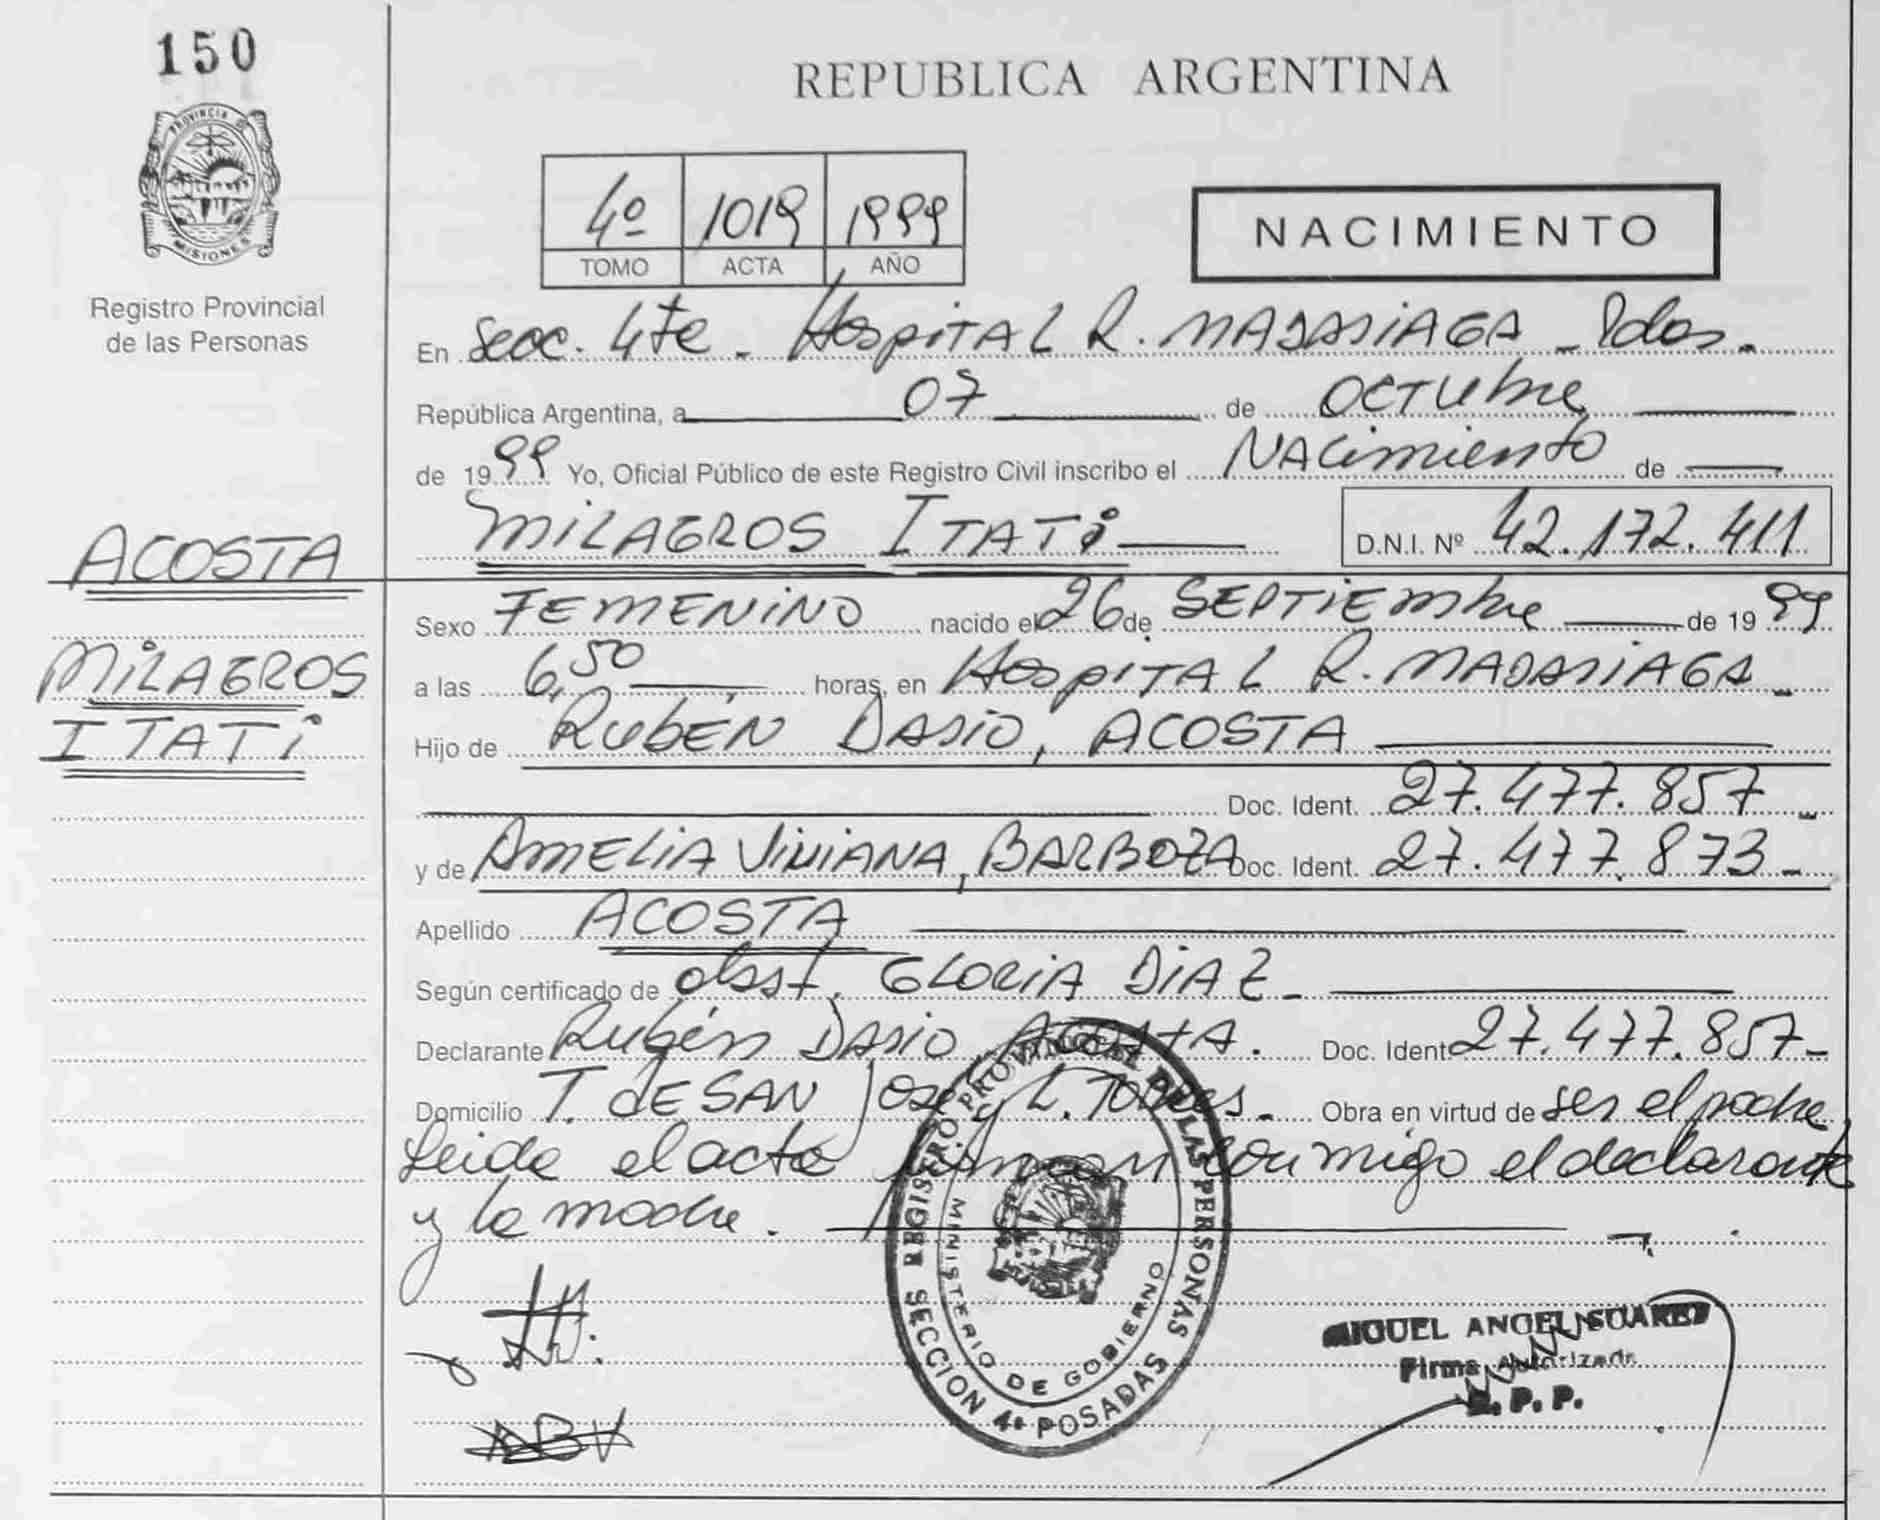 150
REPUBLICA ARGENTINA
PROVINCIA DE
MISIONES
Registro Provincial
de las Personas
4º 1019 1999
TOMO ACTA AÑO
NACIMIENTO
En Secc. 4te - Hospital R. MADARIAGA - Pdas.
República Argentina, a 07 de OCTUbre
de 1999 Yo, Oficial Público de este Registro Civil inscribo el NACimiento de
MiLAGROS ITATi D.N.I. Nº 42.172.411
ACOSTA
MiLAGROS
ITATi
Sexo FEMENiNO nacido el 26 de SEPTiEmbre de 1999
a las 6,50 horas, en HospiTAL R. MADARiAGA -
Hijo de RubÉN DARiO, ACOSTA
Doc. Ident. 27.477.857 -
y de AMELiA ViViANA, BARBOZA Doc. Ident. 27.477.873 -
Apellido ACOSTA
Según certificado de obst. GLORiA DiAZ -
Declarante Rubén DARiO ACOSTA. Doc. Ident 27.477.857 -
Domicilio T. de SAN José y L. TORRes. - Obra en virtud de ser el padre
Leida el acta firman conmigo el declarante
y la madre.
REGISTRO PROVINCIAL DE LAS PERSONAS
MINISTERIO DE GOBIERNO
SECCION 4ª POSADAS
ABV
MIGUEL ANGEL SUAREZ
Firma Autorizada
R. P. P.